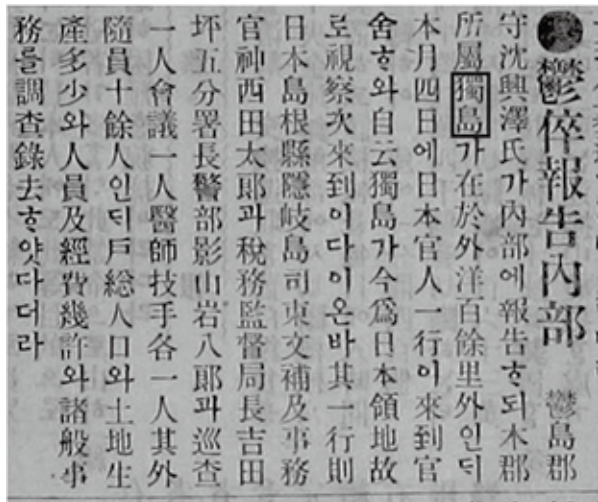 鬱倅報告內部 鬱島郡
守沈興澤氏가內部에報告ᄒᆞ되本郡
所屬獨島가在於外洋百餘里外인ᄃᆡ
本月四日에日本官人一行이來到官
舍ᄒᆞ와自云獨島가今爲日本領地故
로視察次來到이다이온바其一行則
日本島根縣隱岐島司東文補及事務
官神西田太郞과稅務監督局長吉田
坪五分署長警部影山岩八郞과巡查
一人會議一人醫師技手各一人其外
隨員十餘人인ᄃᆡ戶総人口와土地生
產多少와人員及經費幾許와諸般事
務를調查錄去ᄒᆞ얏다더라